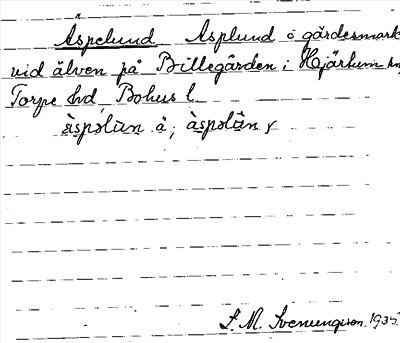 Äspelund Asplund å gärdesmark
vid älven på Billegården i Hjärtum sn,
Torpe hd, Bohus l.
àspəlùn å, àspəlùn
S. M. Svenungson 1935